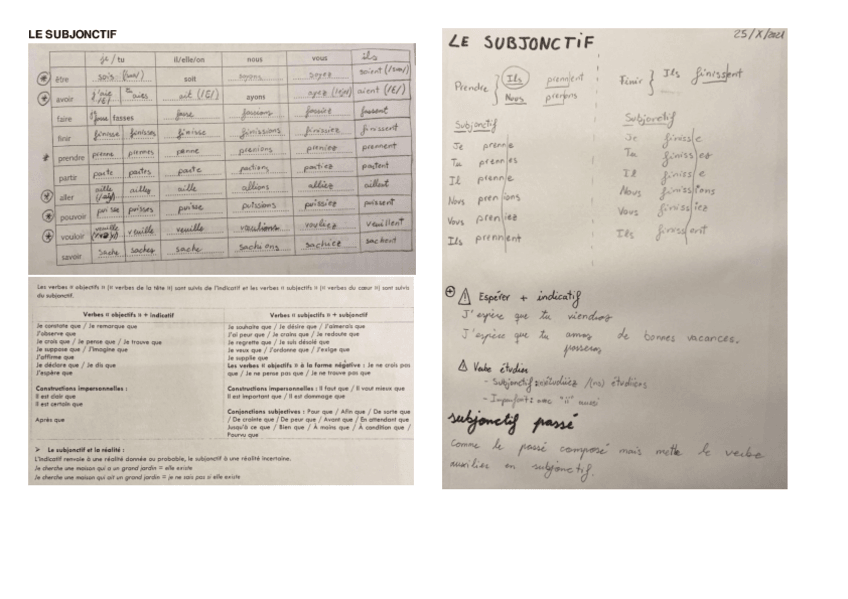 LE SUBJONCTIF
je / tu il/elle/on nous vous ils
être sois soit soyons soyez soient
avoir j'aie aies ait (/E/) ayons ayez aient (/E/)
faire fasse fasses fasse fassions fassiez fassent
finir finisse finisses finisse finissions finissiez finissent
prendre prenne prennes prenne prenions preniez prennent
partir parte partes parte partions partiez partent
aller aille ailles aille allions alliez aillent
pouvoir puisse puisses puisse puissions puissiez puissent
vouloir veuille veuille veuille voulions vouliez veuillent
savoir sache saches sache sachions sachiez sachent
Les verbes « objectifs » (« verbes de la tête ») sont suivis de l'indicatif et les verbes « subjectifs » (« verbes du cœur ») sont suivis
du subjonctif.
Verbes « objectifs » + indicatif
Je constate que / Je remarque que
J'observe que
Je crois que / Je pense que / Je trouve que
Je suppose que / J'imagine que
J'affirme que
Je déclare que / Je dis que
J'espère que
Constructions impersonnelles :
Il est clair que
Il est certain que
Après que
Verbes « subjectifs » + subjonctif
Je souhaite que / Je désire que / J'aimerais que
J'ai peur que / Je crains que / Je redoute que
Je regrette que / Je suis désolé que
Je veux que / J'ordonne que / J'exige que
Je supplie que
Les verbes « objectifs » à la forme négative : Je ne crois pas
que / Je ne pense pas que / Je ne trouve pas que
Constructions impersonnelles : Il faut que / Il vaut mieux que
Il est important que / Il est dommage que
Conjonctions subjectives : Pour que / Afin que / De sorte que
/ De crainte que / De peur que / Avant que / En attendant que
Jusqu'à ce que / Bien que / À moins que / À condition que /
Pourvu que
➢ Le subjonctif et la réalité :
L'indicatif renvoie à une réalité donnée ou probable, le subjonctif à une réalité incertaine.
Je cherche une maison qui a un grand jardin = elle existe
Je cherche une maison qui ait un grand jardin = je ne sais pas si elle existe
25/X/2021
LE SUBJONCTIF
Prendre } Ils prennent
Nous prenons
Finir } Ils finissent
Subjonctif
Je prenne
Tu prennes
Il prenne
Nous prenions
Vous preniez
Ils prennent
Subjonctif
Je finisse
Tu finisses
Il finisse
Nous finissions
Vous finissiez
Ils finissent
Espérer + indicatif
J'espère que tu viendras
J'espère que tu auras de bonnes vacances.
passeras
Verbe étudier
- Subjonctif: étudiiez /(ns) étudiions
- Imparfait: avec "ii" aussi
subjonctif passé
Comme le passé composé mais mettre le verbe
auxilier en subjonctif.